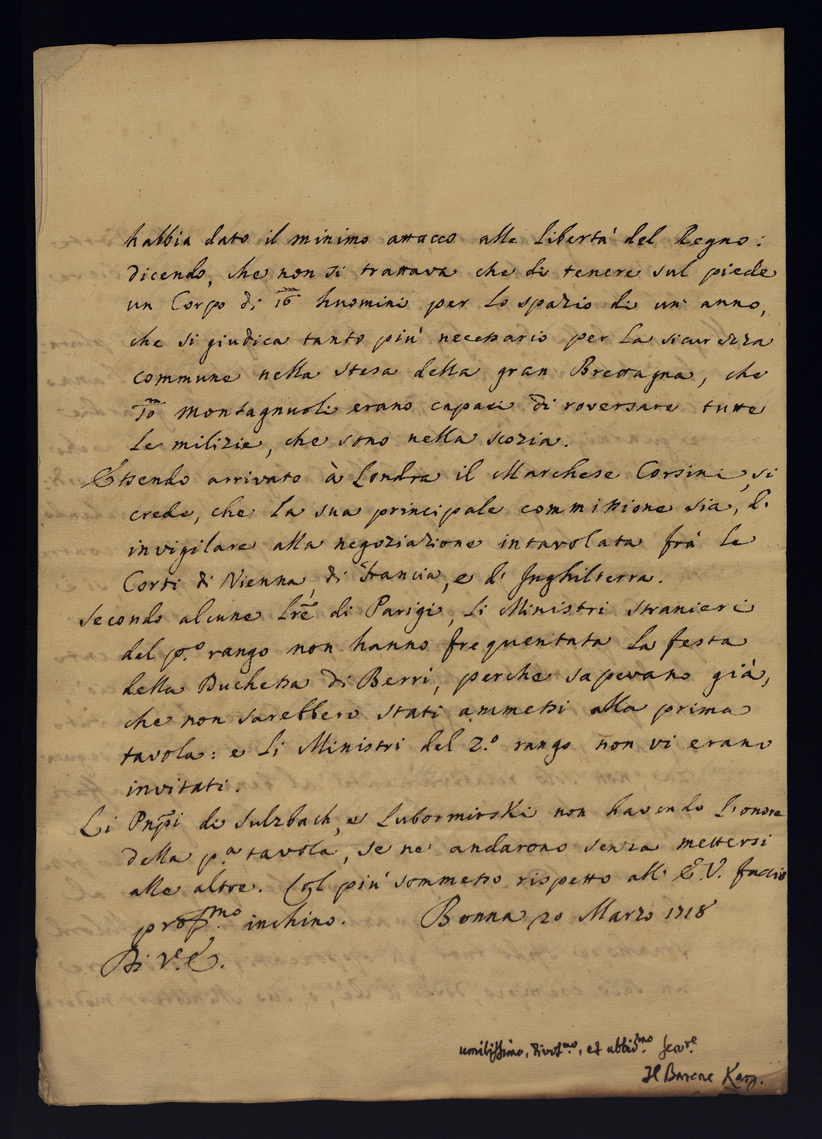 habbia dato il minimo attacco alle libertà del Regno:
dicendo, che non si trattava che di tenere sul piede
un Corpo di 16m huomini per lo spazio di un' anno,
che si giudica tanto più necessario per la sicurezza
commune nella stesa della gran Brettagna, che
10m montagnuoli erano capaci di roversare tutte
le milizie, che sono nella scozia.
Essendo arrivato à Londra il Marchese Corsini, si
crede, che la sua principale commissione sia, d'
invigilare alla negoziazione intavolata frà le
Corti di Vienna, di Francia, e d' Inghilterra.
Secondo alcune lre di Parigi, li Ministri stranieri
del p.o rango non hanno frequentata la festa
della Duchessa di Berri, perche sapevano già,
che non sarebbero stati ammessi alla prima
tavola: e li Ministri del 2.o rango non vi erano
invitati.
Li Pnpi di Sulzbach, e Lubormirski non havendo l'onore
della p.a tavola, se ne' andarono senza mettersi
alle altre. Col più sommesso rispetto all' E.V. faccio
prof.mo inchino. Bonna 20 Marzo 1718
Di V.E.
umilissimo, divot.mo, et obbid.mo serv.re
Il Barone Karg.